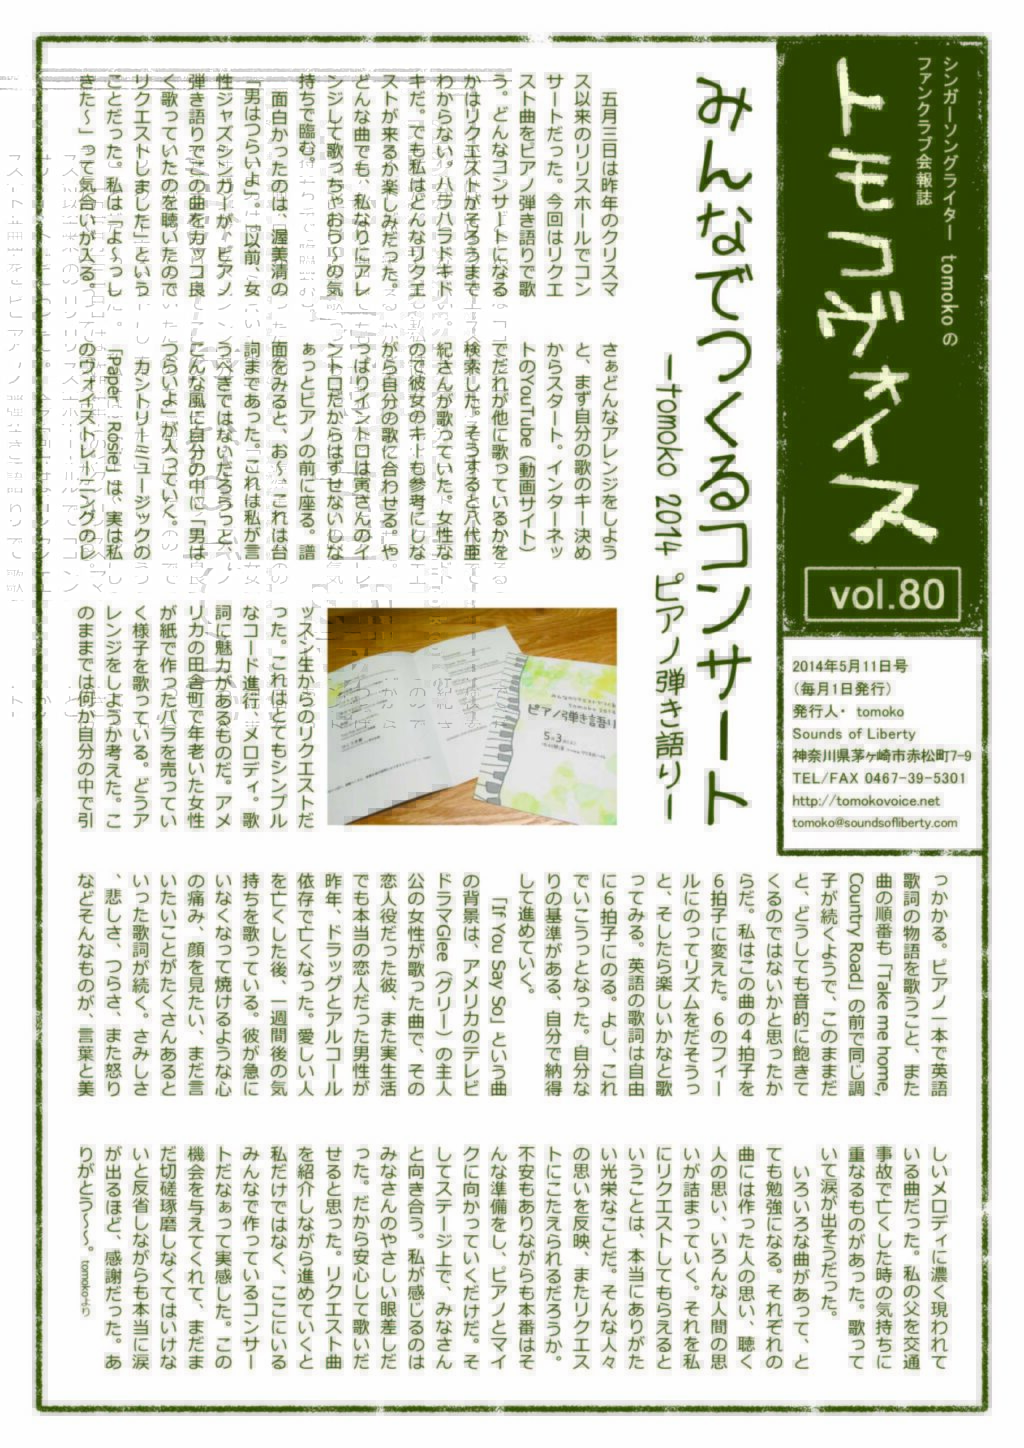 シンガーソングライター tomokoの
ファンクラブ会報誌
トモコヴォイス
vol.80
2014年5月11日号
（毎月1日発行）
発行人・ tomoko
Sounds of Liberty
神奈川県茅ヶ崎市赤松町7-9
TEL/FAX 0467-39-5301
http://tomokovoice.net
tomoko@soundsofliberty.com
みんなでつくるコンサート
ーtomoko 2014 ピアノ弾き語りー
五月三日は昨年のクリスマ
ス以来のリリスホールでコン
サートだった。今回はリクエ
スト曲をピアノ弾き語りで歌
う。どんなコンサートになる
かはリクエストがそろうまで
わからない。ハラハラドキド
キだ。でも私はどんなリクエ
ストが来るか楽しみだった。
どんな曲でも、私なりにアレ
ンジして歌っちゃおう〜の気
持ちで臨む。
面白かったのは、渥美清の
「男はつらいよ」。「以前、女
性ジャズシンガーが、ピアノ
弾き語りでこの曲をカッコ良
く歌っていたのを聴いたので
リクエストしました」という
ことだった。私は「よ〜っし
きた〜」って気合いが入る。
さぁどんなアレンジをしよう
と、まず自分の歌のキー決め
からスタート。インターネッ
トのYouTube（動画サイト）
でだれが他に歌っているかを
検索した。そうすると八代亜
紀さんが歌っていた。女性な
ので彼女のキーも参考にしな
がら自分の歌に合わせる。や
っぱりイントロは寅さんのイ
ントロだからはずせないしな
あっとピアノの前に座る。譜
面をみると、お〜、これは台
詞まであった。これは私が言
うべきではないだろうっと、
こんな風に自分の中に「男は
つらいよ」が入っていく。
カントリーミュージックの
「Paper Rosie」は、実は私
のヴォイストレーニングのレ
ピアノ弾き語り
5月3
ッスン生からのリクエストだ
った。これはとてもシンプル
なコード進行、メロディ。歌
詞に魅力があるものだ。アメ
リカの田舎町で年老いた女性
が紙で作ったバラを売ってい
く様子を歌っている。どうア
レンジをしようか考えた。こ
のままでは何か自分の中で引
っかかる。ピアノ一本で英語
歌詞の物語を歌うこと、また
曲の順番も「Take me home,
Country Road」の前で同じ調
子が続くようで、このままだ
と、どうしても音的に飽きて
くるのではないかと思ったか
らだ。私はこの曲の4拍子を
6拍子に変えた。6のフィー
ルにのってリズムをだそうっ
と、そしたら楽しいかなと歌
ってみる。英語の歌詞は自由
に6拍子にのる。よし、これ
でいこうっとなった。自分な
りの基準がある、自分で納得
して進めていく。
「If You Say So」という曲
の背景は、アメリカのテレビ
ドラマGlee（グリー）の主人
公の女性が歌った曲で、その
恋人役だった彼、また実生活
でも本当の恋人だった男性が
昨年、ドラッグとアルコール
依存で亡くなった。愛しい人
を亡くした後、一週間後の気
持ちを歌っている。彼が急に
いなくなって焼けるような心
の痛み、顔を見たい、まだ言
いたいことがたくさんあると
いった歌詞が続く。さみしさ
、悲しさ、つらさ、また怒り
などそんなものが、言葉と美
しいメロディに濃く現われて
いる曲だった。私の父を交通
事故で亡くした時の気持ちに
重なるものがあった。歌って
いて涙が出そうだった。
いろいろな曲があって、と
ても勉強になる。それぞれの
曲には作った人の思い、聴く
人の思い、いろんな人間の思
いが詰まっていく。それを私
にリクエストしてもらえると
いうことは、本当にありがた
い光栄なことだ。そんな人々
の思いを反映、またリクエス
トにこたえられるだろうか。
不安もありながらも本番はそ
んな準備をし、ピアノとマイ
クに向かっていくだけだ。そ
してステージ上で、みなさん
と向き合う。私が感じるのは
みなさんのやさしい眼差しだ
った。だから安心して歌いだ
せると思った。リクエスト曲
を紹介しながら進めていくと
私だけではなく、ここにいる
みんなで作っているコンサー
トだなぁって実感した。この
機会を与えてくれて、まだま
だ切磋琢磨しなくてはいけな
いと反省しながらも本当に涙
が出るほど、感謝だった。あ
りがとう〜〜。 tomokoより